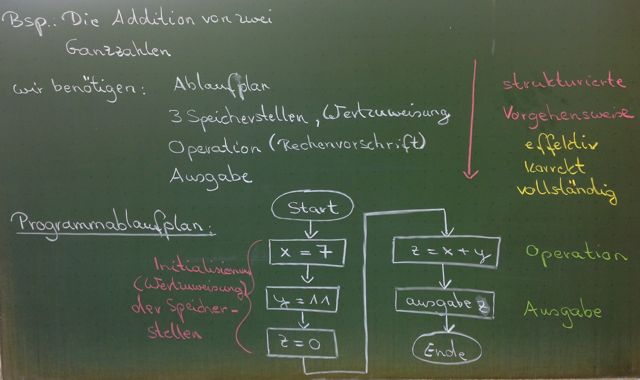 Bsp.: Die Addition von zwei
Ganzzahlen
wir benötigen: Ablaufplan
3 Speicherstellen, Wertzuweisung
Operation (Rechenvorschrift)
Ausgabe
strukturierte
Vorgehensweise
effektiv
korrekt
vollständig
Programmablaufplan:
Initialisierung
(Wertzuweisung)
der Speicher-
stellen
Start
x = 7
y = 11
z = 0
z = x + y
ausgabe z
Ende
Operation
Ausgabe